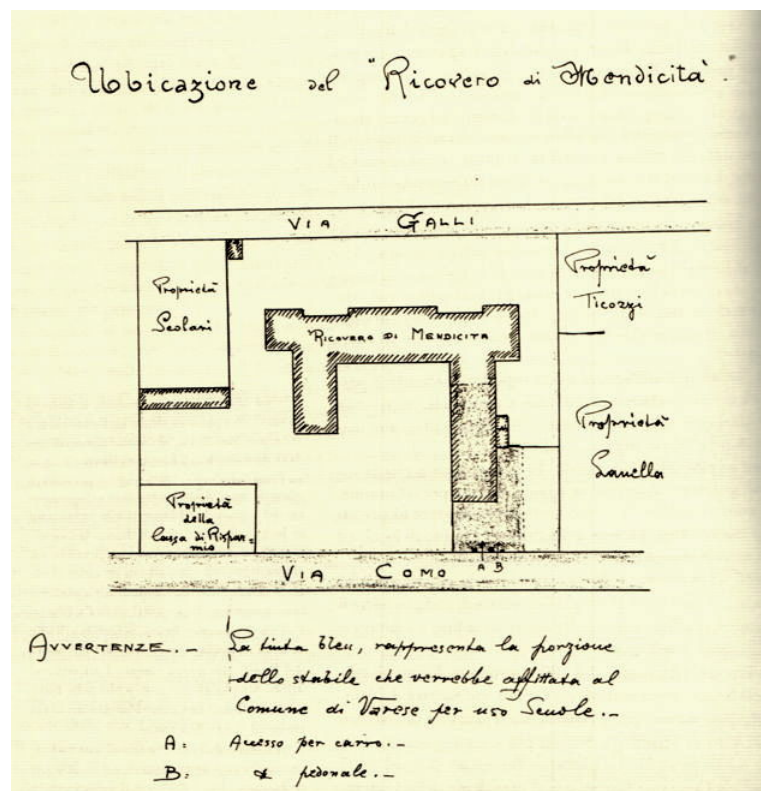 Ubicazione del "Ricovero di Mendicità".
VIA GALLI
Proprietà
Scolari
Proprietà
Ticozzi
RICOVERO DI MENDICITA
Proprietà
Zanella
Proprietà
della
Cassa di Rispar=
mio
A B
VIA COMO
AVVERTENZE.- La tinta bleu, rappresenta la porzione
dello stabile che verrebbe affittata al
Comune di Varese per uso Scuole.-
A: Accesso per carro.-
B: " pedonale.-